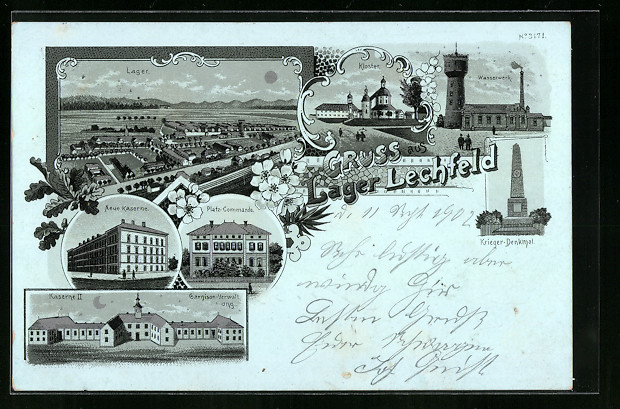 No 3171.
Lager.
Kloster.
Wasserwerk.
GRUSS aus
Lager Lechfeld
Neue Kaserne.
Platz-Commando.
Krieger-Denkmal.
Kaserne II
Garnison-Verwalt-
ung.
d. 11 Sept 1902
Sehr lustig aber
windig hier
Besten Gruß
Euer Schwager